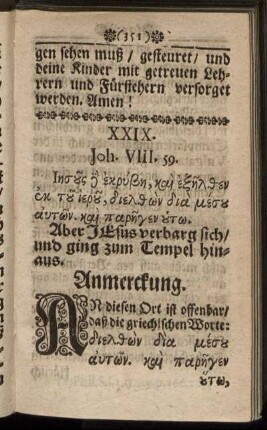 (351)
gen sehen muß / gesteuret / und
deine Kinder mit getreuen Leh-
rern und Fürstehern versorget
werden. Amen!
XXIX.
Joh. VIII. 59.
Ιησȣ͂ς δὲ ἐκρύβη, καὶ ἐξῆλθεν
ἐκ τȣ͂ ἱερȣ͂, διελθὼν διὰ μέσȣ
αὐτῶν. καὶ παρῆγεν ȣτω.
Aber JEsus verbarg sich /
und ging zum Tempel hin-
aus.
Anmerckung.
AN diesen Ort ist offenbar /
daß die griechischen Worte:
διελθὼν διὰ μέσȣ
αὐτῶν. καὶ παρῆγεν
ȣτω,